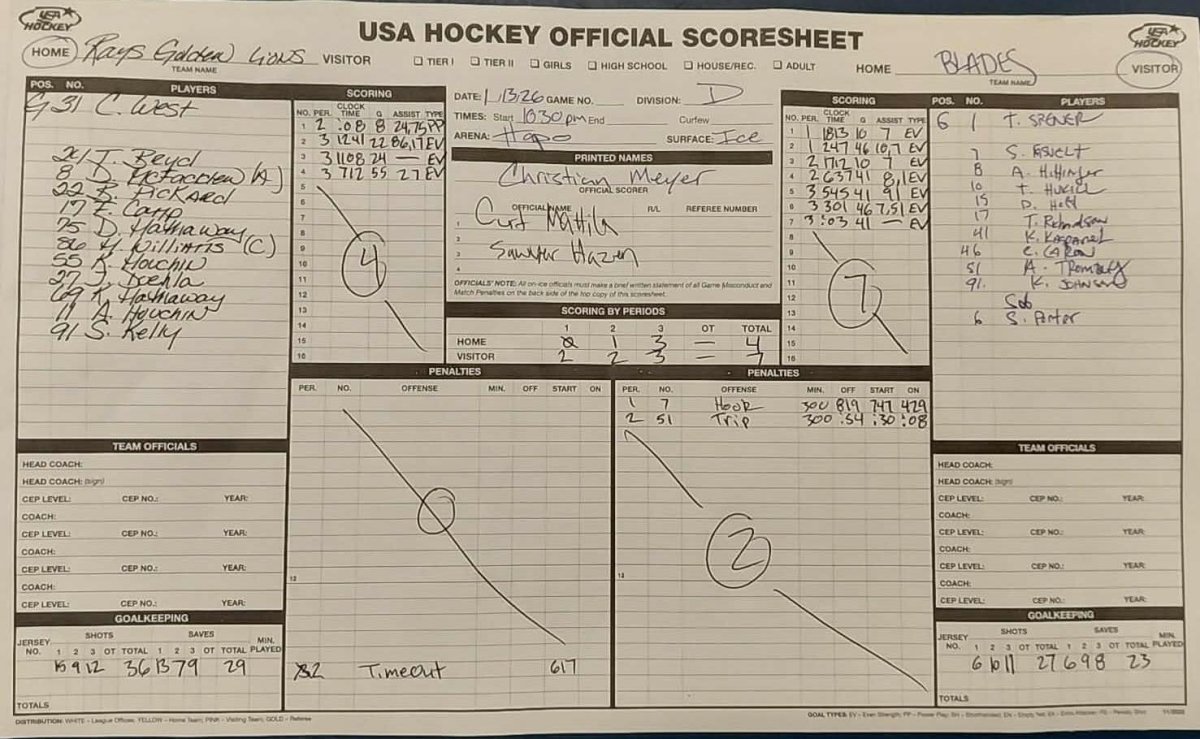 USA HOCKEY
USA HOCKEY OFFICIAL SCORESHEET
USA HOCKEY
HOME Rays Golden Lions VISITOR
TEAM NAME
TIER I TIER II GIRLS HIGH SCHOOL HOUSE/REC. ADULT
HOME BLADES VISITOR
TEAM NAME
POS. NO. PLAYERS
G 31 C. West
J. Beyd
8 D. McFadden (A)
22 B. Pickard
17 E. Camp
75 D. Hathaway
86 M. Williams (C)
55 K. Houchin
27 J. Doehla
69 K. Hathaway
11 A. Houchin
91 S. Kelly
SCORING
NO. PER. CLOCK TIME G ASSIST TYPE
1 2 :08 8 24,75 PP
2 3 1241 22 86,17 EV
3 3 1108 24 — EV
4 3 712 55 27 EV
5
6
7
8
9
10
11
12
13
14
15
16
4
DATE: 1/13/26 GAME NO. DIVISION: D
TIMES: Start 10:30pm End Curfew
ARENA: Hapo SURFACE: Ice
PRINTED NAMES
Christian Meyer
OFFICIAL SCORER
OFFICIAL NAME R/L REFEREE NUMBER
1 Curt Mattila
2
3 Sawyer Hazen
4
OFFICIALS' NOTE: All on-ice officials must make a brief written statement of all Game Misconduct and
Match Penalties on the back side of the top copy of this scoresheet.
SCORING BY PERIODS
1 2 3 OT TOTAL
HOME 0 1 3 — 4
VISITOR 2 2 3 — 7
SCORING
NO. PER. CLOCK TIME G ASSIST TYPE
1 1 1813 10 7 EV
2 1 247 46 10,7 EV
3 2 1712 10 7 EV
4 2 637 41 8,1 EV
5 3 545 41 91 EV
6 3 301 46 7,51 EV
7 3 :03 41 — EV
8
9
10
11
12
13
14
15
16
7
POS. NO. PLAYERS
G 1 T. Spener
7
8 A. Hilfinger
10 T. Hukill
15 D. Holt
17 T. Richardson
41 K.
46 C. Caron
51 A. Trombly
91. K. Johnson
Sub
6 S. Porter
PENALTIES
PER. NO. OFFENSE MIN. OFF START ON
12
0
2 Timeout 617
PENALTIES
PER. NO. OFFENSE MIN. OFF START ON
1 7 Hook 300 819 747 429
2 51 Trip 300 :54 :30 :08
12
2
TEAM OFFICIALS
HEAD COACH:
HEAD COACH: (sign)
CEP LEVEL: CEP NO.: YEAR:
COACH:
CEP LEVEL: CEP NO.: YEAR:
COACH:
CEP LEVEL: CEP NO.: YEAR:
COACH:
CEP LEVEL: CEP NO.: YEAR:
GOALKEEPING
JERSEY NO. SHOTS SAVES MIN. PLAYED
1 2 3 OT TOTAL 1 2 3 OT TOTAL
15 9 12 36 13 7 9 29
TOTALS
TEAM OFFICIALS
HEAD COACH:
HEAD COACH: (sign)
CEP LEVEL: CEP NO.: YEAR:
COACH:
CEP LEVEL: CEP NO.: YEAR:
COACH:
CEP LEVEL: CEP NO.: YEAR:
COACH:
CEP LEVEL: CEP NO.: YEAR:
GOALKEEPING
JERSEY NO. SHOTS SAVES MIN. PLAYED
1 2 3 OT TOTAL 1 2 3 OT TOTAL
6 10 11 27 6 9 8 23
TOTALS
DISTRIBUTION: WHITE - League Offices, YELLOW - Home Team, PINK - Visiting Team, GOLD - Referee
GOAL TYPES: EV - Even Strength, PP - Power Play, SH - Shorthanded, EN - Empty Net, EA - Extra Attacker, PS - Penalty Shot